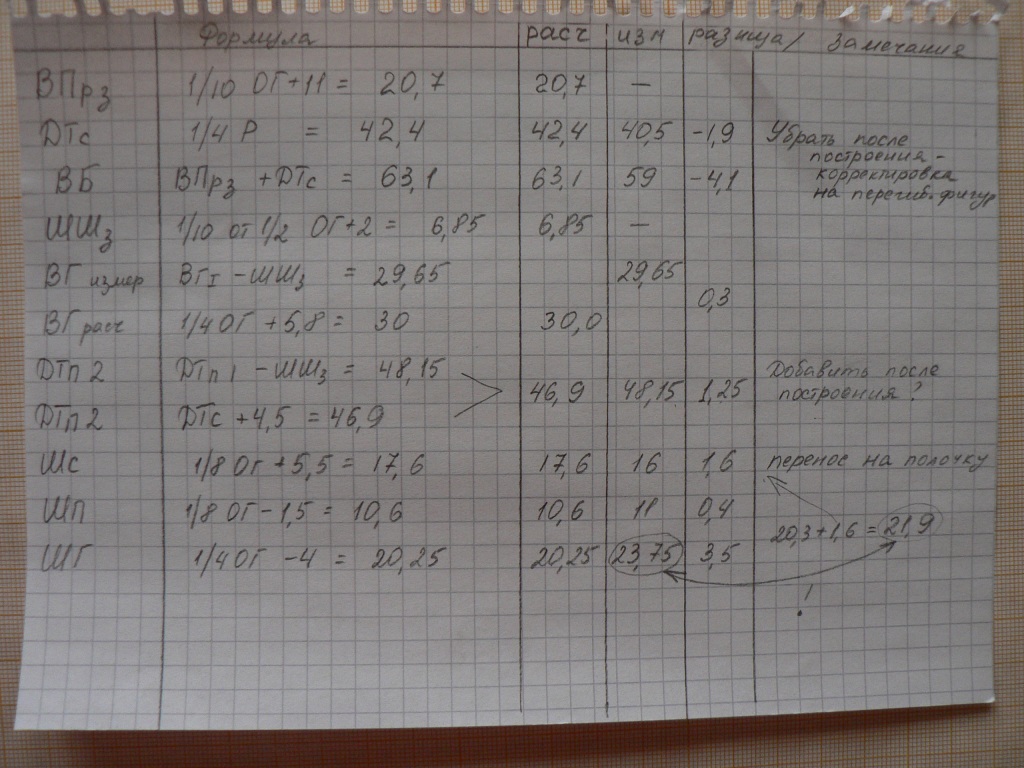 Формула расч изм разница/ Замечания
ВПрз 1/10 ОГ+11 = 20,7 20,7 —
ДТс 1/4 Р = 42,4 42,4 40,5 -1,9 Убрать после
построения -
корректировка
ВБ ВПрз +ДТс = 63,1 63,1 59 -4,1
на перегиб. фигур
ШШз 1/10 от 1/2 ОГ+2 = 6,85 6,85 —
ВГ измер ВГI - ШШз = 29,65 29,65
0,3
ВГ расч 1/4 ОГ +5,8 = 30 30,0
ДТп2 ДТп1 - ШШз = 48,15 Добавить после
46,9 48,15 1,25 построения?
ДТп2 ДТс +4,5 = 46,9
Шс 1/8 ОГ +5,5 = 17,6 17,6 16 1,6 перенос на полочку
ШП 1/8 ОГ - 1,5 = 10,6 10,6 11 0,4
20,3+1,6 = 21,9
ШГ 1/4 ОГ -4 = 20,25 20,25 23,75 3,5
!